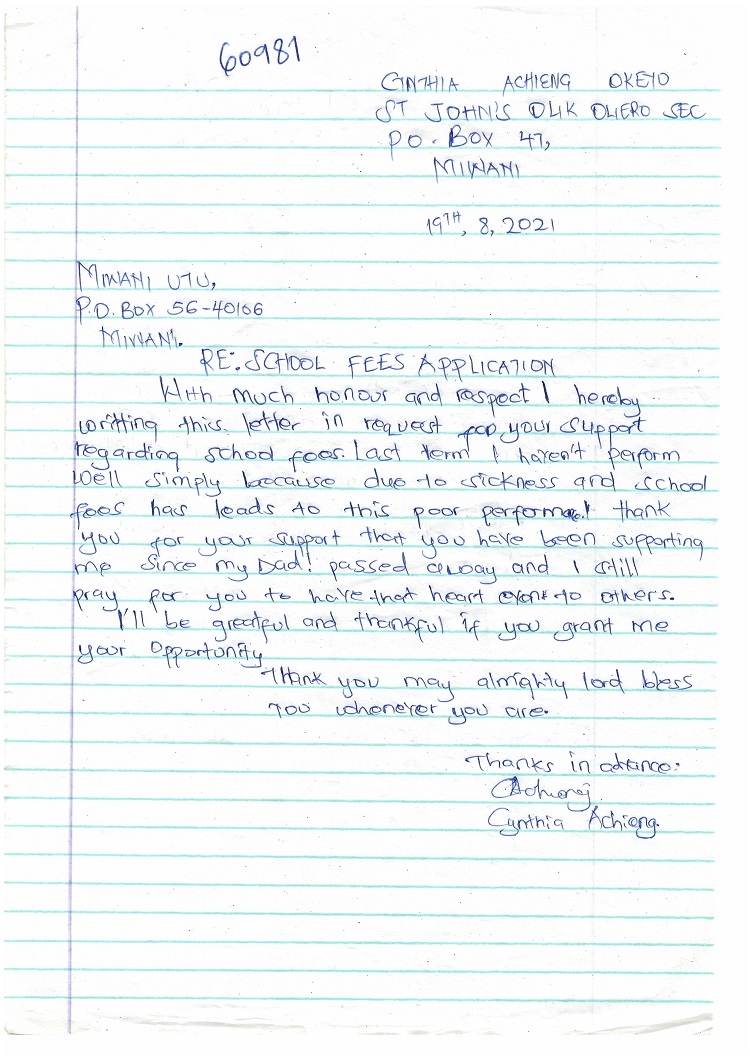 60981
CINTHIA ACHIENG OKEYO
ST JOHN'S OLIK OLIERO SEC
P.O. BOX 47,
MIWANI
19TH, 8, 2021
MIWANI UTU,
P.O. BOX 56-40106
MIWANI.
RE: SCHOOL FEES APPLICATION
With much honour and respect I hereby
writting this letter in request for your support
regarding school fees. Last term I haven't perform
well simply because due to sickness and school
fees has leads to this poor thank
you for your support that you have been supporting
me since my Dad! passed away and I still
pray for you to have that heart even to others.
I'll be greatful and thankful if you grant me
your opportunity
Thank you may almighty lord bless
you whenever you are.
Thanks in advance:
Achieng
Cynthia Achieng.